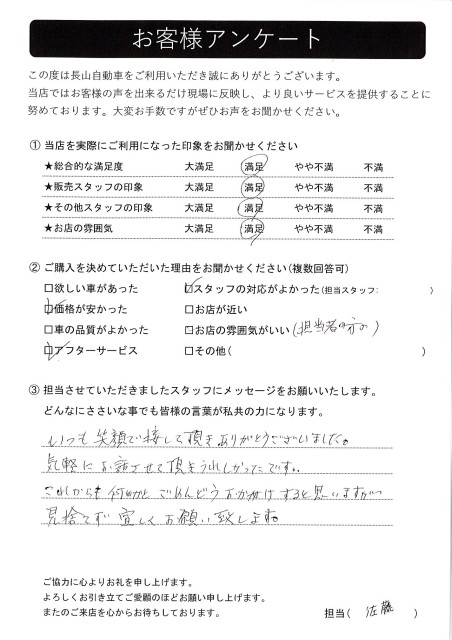 お客様アンケート
この度は長山自動車をご利用いただき誠にありがとうございます。
当店ではお客様の声を出来るだけ現場に反映し、より良いサービスを提供することに
努めております。大変お手数ですがぜひお声をお聞かせください。
① 当店を実際にご利用になった印象をお聞かせください
★総合的な満足度 大満足 満足 やや不満 不満
★販売スタッフの印象 大満足 満足 やや不満 不満
★その他スタッフの印象 大満足 満足 やや不満 不満
★お店の雰囲気 大満足 満足 やや不満 不満
② ご購入を決めていただいた理由をお聞かせください(複数回答可)
□欲しい車があった ☑スタッフの対応がよかった(担当スタッフ: )
☑価格が安かった □お店が近い
□車の品質がよかった □お店の雰囲気がいい(担当者の方の)
☑アフターサービス □その他( )
③ 担当させていただきましたスタッフにメッセージをお願いいたします。
どんなにささいな事でも皆様の言葉が私共の力になります。
いつも笑顔で接して頂きありがとうございました。
気軽にお話させて頂きうれしかったです。
これからも何かとごめんどうおかけすると思いますが
見捨てず宜しくお願い致します。
ご協力に心よりお礼を申し上げます。
よろしくお引き立てご愛顧のほどお願い申し上げます。
またのご来店を心からお待ちしております。 担当( 佐藤 )